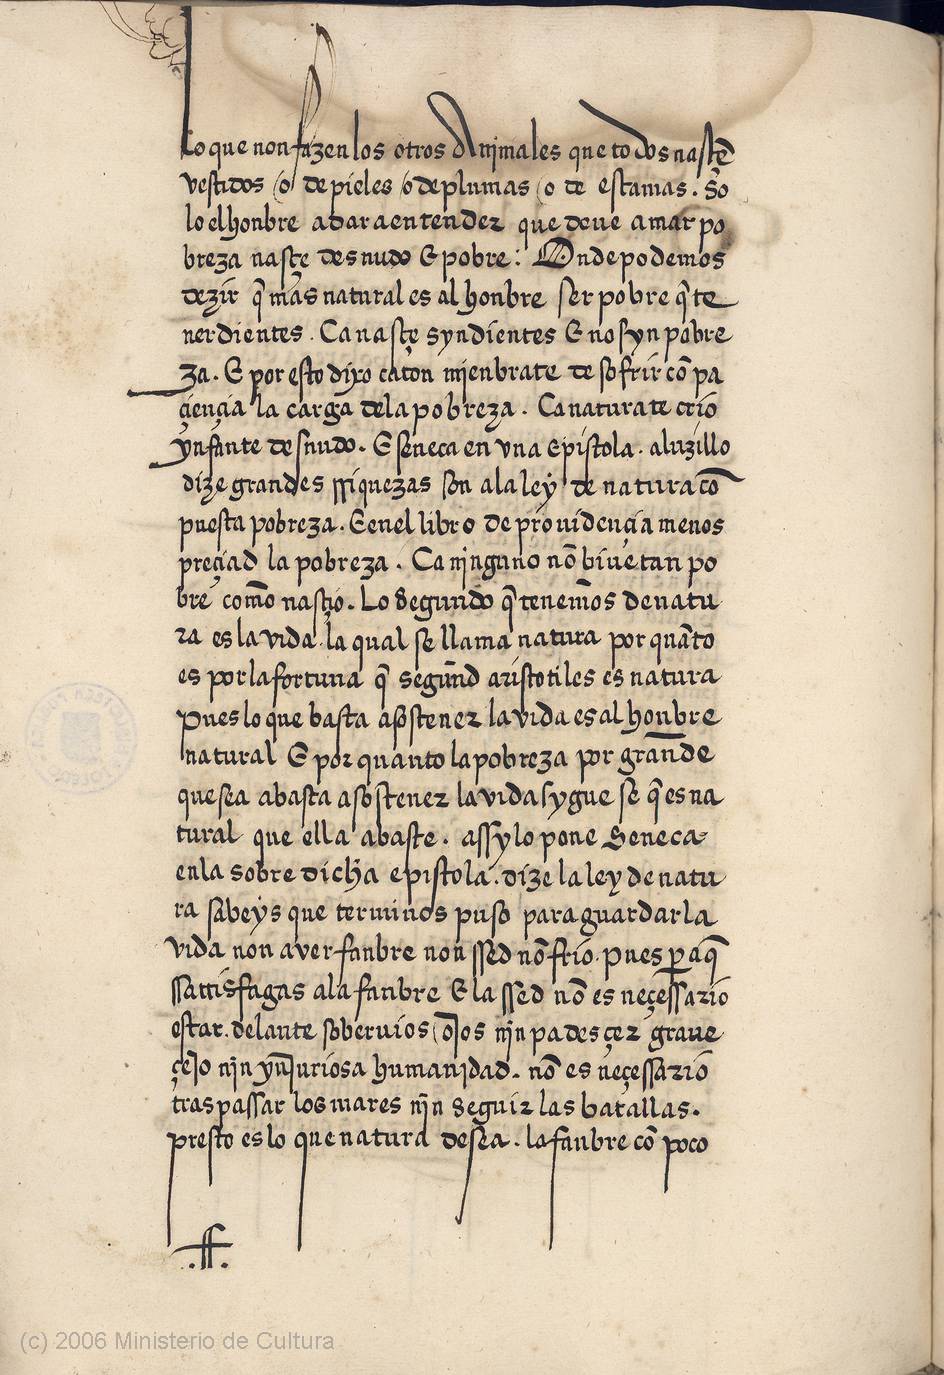 Lo que non fazen los otros Animales que todos nasçẽ
vestidos / o de pieles / o de plumas / o de escamas . So
lo el honbre a dar a entender que deue amar po
breza nasçe desnudo E pobre : Onde podemos
dezir q̃ mas natural es al honbre ser pobre q̃ te
ner dientes . Ca nasçe syn dientes E no syn pobre
za . E por esto dixo caton mjenbrate de sofrir cõ pa
çiençia la carga de la pobreza . Ca natura te crio
ynfante desnudo . E seneca en vna epistola . a luzillo
dize grandes rriquezas son a la ley de natura cõ
puesta pobreza . E en el libro de prouidençia menos
preçiad la pobreza . Ca njnguno nõ biue tan po
bre como nasçio . Lo segundo q̃ tenemos de natu
ra es la vida . la qual se llama natura por quãto
es por la fortuna q̃ segund aristotiles es natura
Pues lo que basta a sostener la vida es al honbre
natural E por quanto la pobreza por grande
que sea abasta a sostener la vida sygue se q̃ es na
tural que ella abaste . assy lo pone Seneca
en la sobre dicha epistola . dize la ley de natu
ra sabeys que terminos puso para guardar la
vida non aver fanbre non ssed nõ frio . pues para q̃
ssatisfagas a la fanbre E la ssed nõ es neçessario
estar . delante soberuios ojos njn padesçer graue
çejo njn ynjuriosa humanjdad . nõ es neçessario
traspassar los mares njn seguir las batallas .
presto es lo que natura desea . la fanbre cõ poco
(c) 2006 Ministerio de Cultura